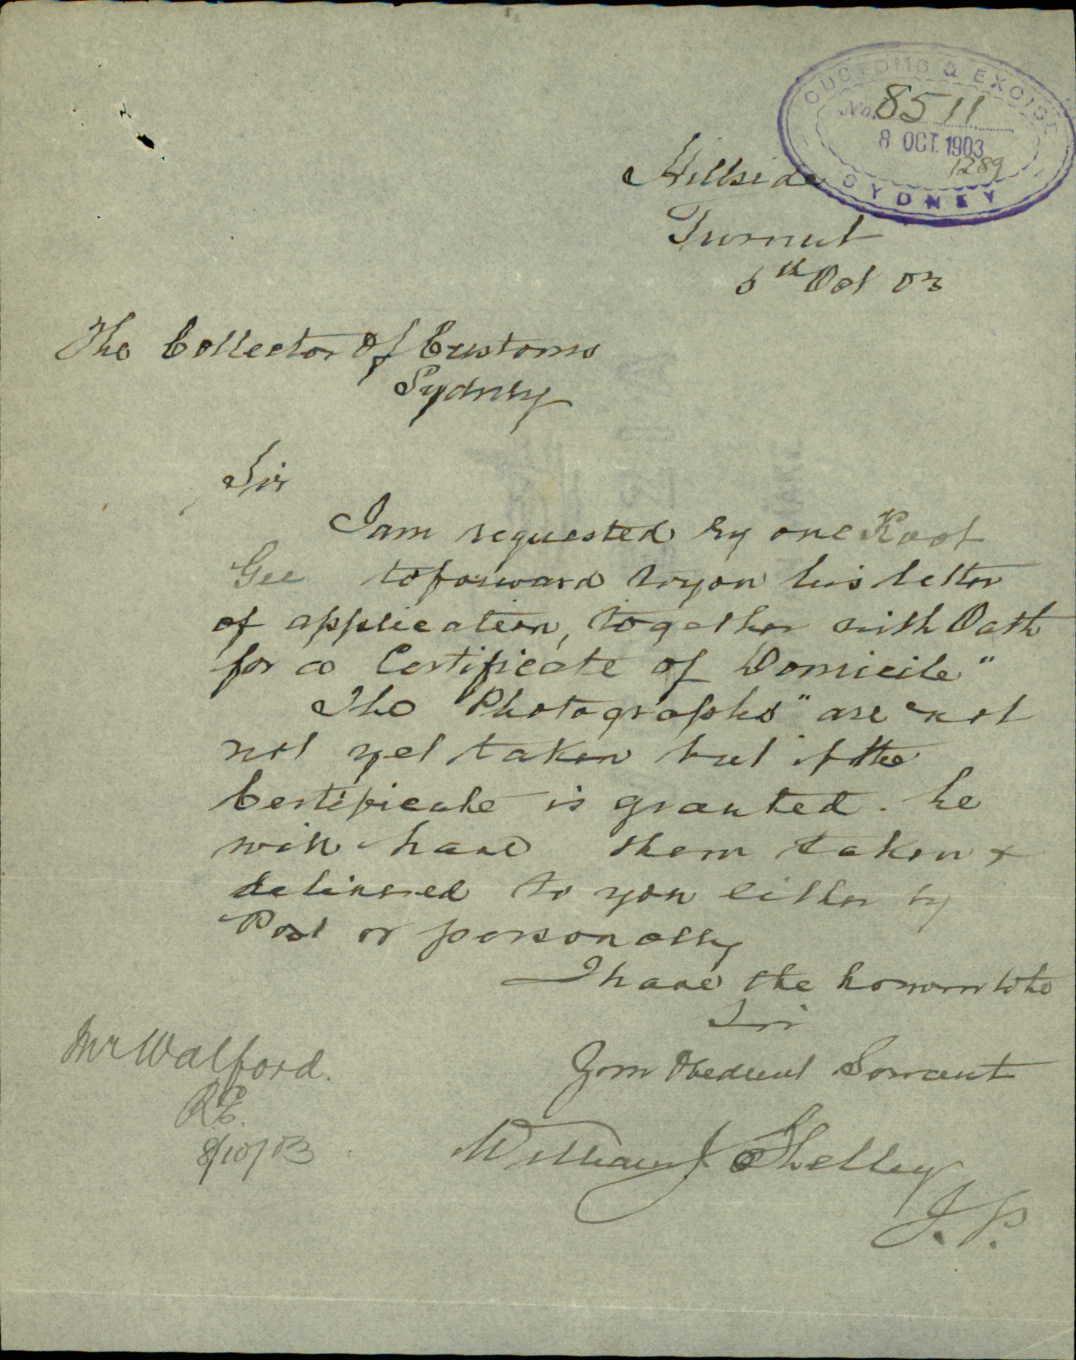 CUSTOMS & EXCISE
No. 8511
8 OCT. 1903
1289
SYDNEY
Hillside
Tumut
5th Oct 03
The Collector Of Customs
Sydney
Sir
I am requested by one Koot
Gee to forward to you his letter
of application, together with Oath
for a Certificate of Domicile"
The "Photographs" are not
not yet taken but if the
Certificate is granted. he
will have them taken &
delivered to you either by
Post or personally
I have the honour to be
Sir
Your Obedient Servant
William J Shelley
J. P.
Mr Walford.
8/10/03